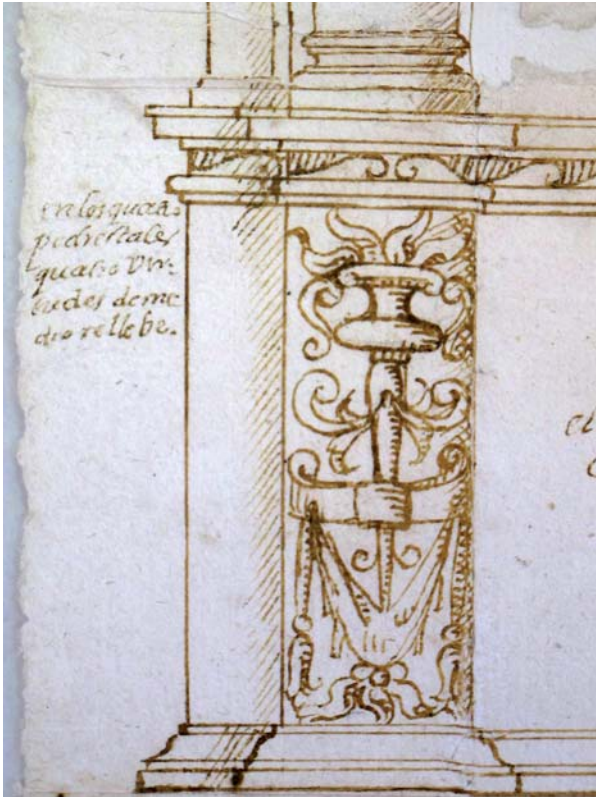 en los quatro
pedrestales
quatro Vir-
tudes de me
dio rellebe.
el